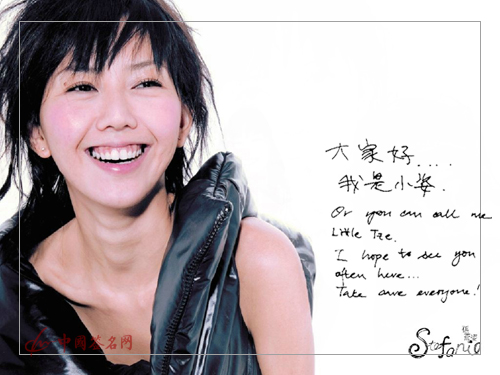 大家好....
我是小姿.
Or you can call me
Little Tze.
I hope to see you
often here...
Take care everyone!
Stefanie
中国签名网